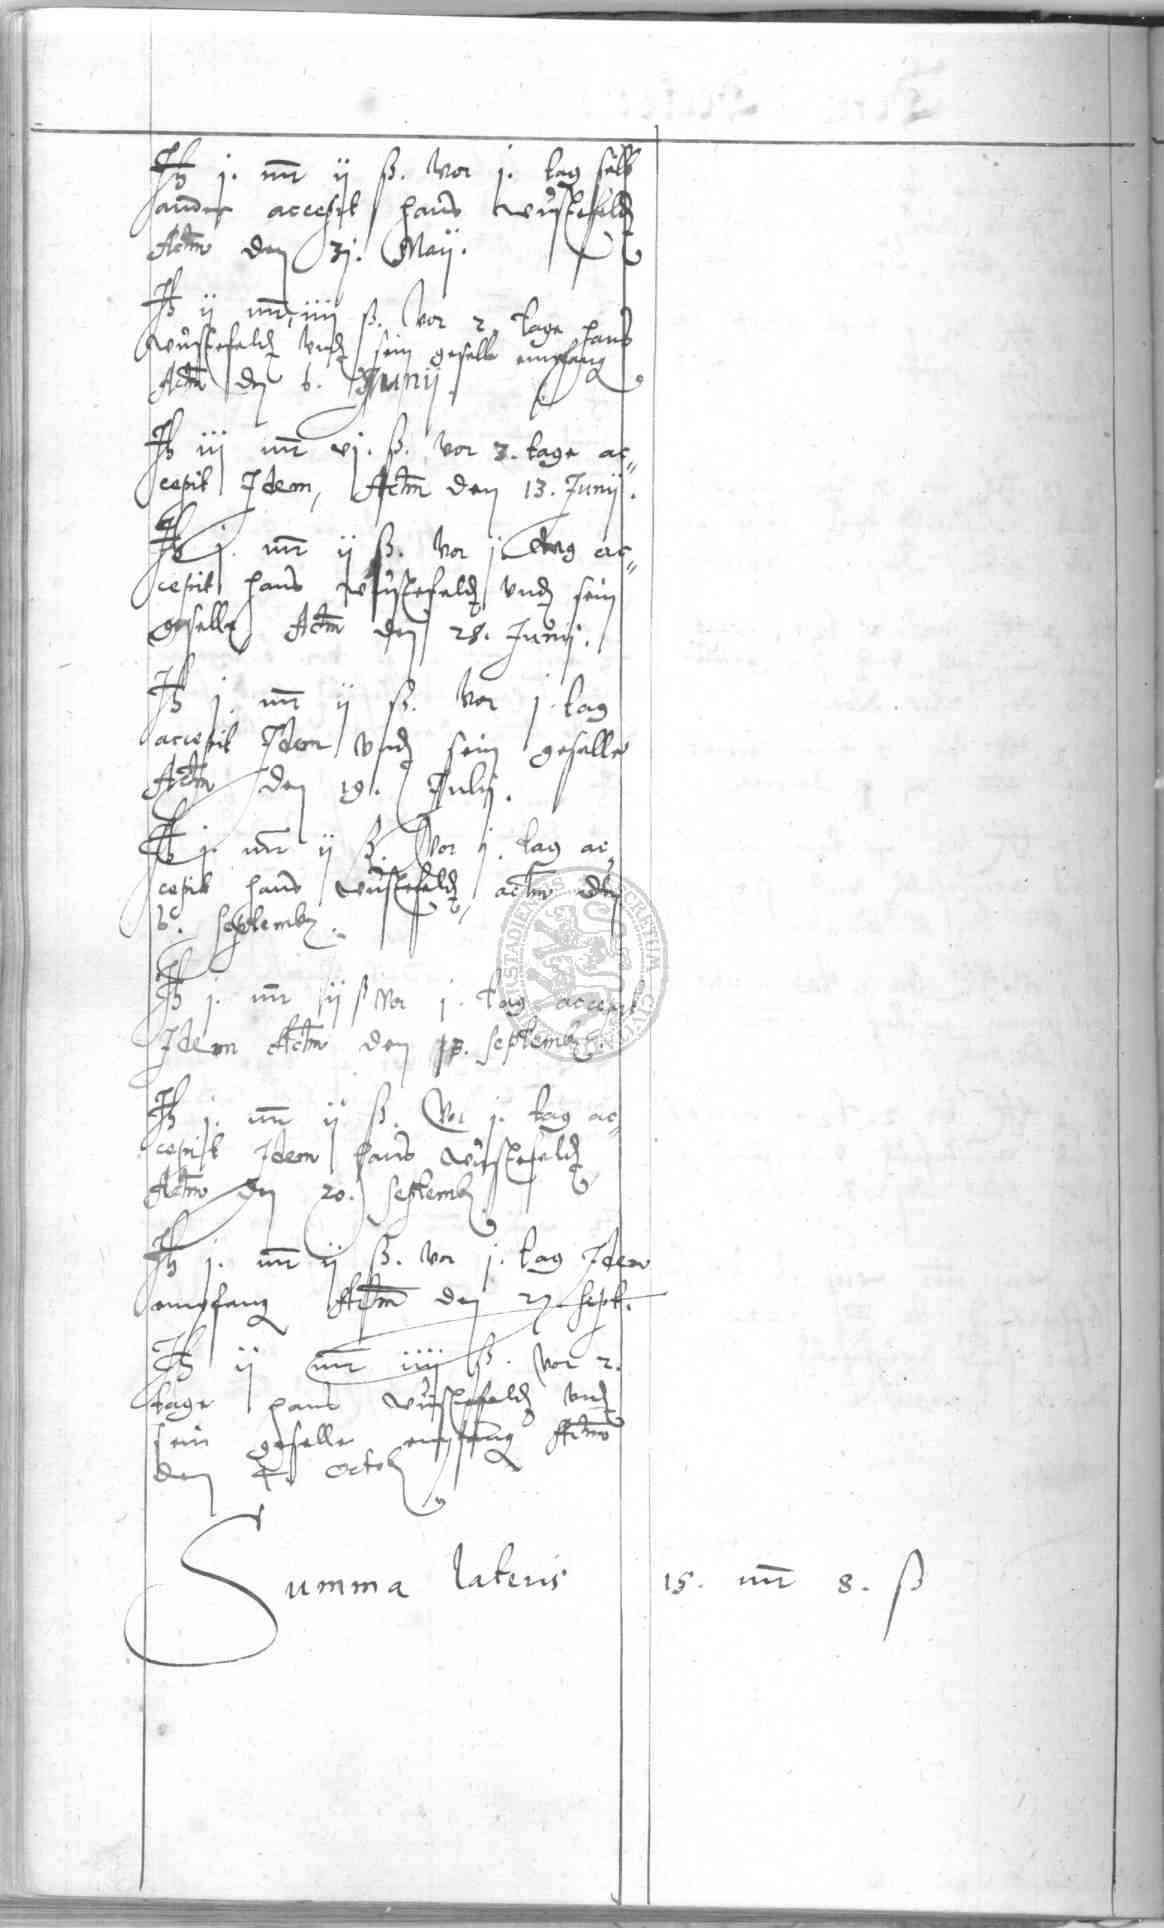 It j. mr ij ß. vor j. tag selb
ander accepit hans Wüstefeldt
Actm den 31. Maij.
It ij mr, iiij ß. Vor 2. tage hans
Wüstefeldt vnd sein geselle empfang
Actm den 6. Junij.
It iij mr vj. ß. vor 3. tage ac=
cepit Idem, Actm den 13. Junij.
It j. mr ij ß. vor j. tag ac=
cepit hans Wüstefeldt vnd sein
geselle Actm den 28. Junij.
It j. mr ij ß. vor j. tag
accepit Idem vnd sein geselle
Actm den 19. Julij.
It j. mr ij ß. Vor j. tag ac=
cepit hans Wüstefeldt, actm den
6. Septemb.
It j. mr ij ß vor j. tag accepit
Idem Actm den 13. Septemb.
It j. mr ij ß. Vor j. tag ac=
cepit Idem hans Wüstefeldt
Actm den 20. Septemb
It j. mr ij ß. vor j. tag Idem
empfang Actm den 27 Sept.
It ij mr iiij ß. vor 2.
tage hans Wüstefeldt vnd
sein geselle empfang Actm
den 4. Octob
Summa lateris 15. mr 8. ß